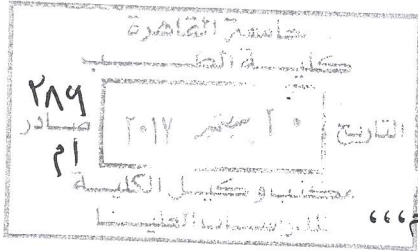 جامعة القاهرة
كلية الطب
٢٨٩
صادر
٢٠ سبتمبر ٢٠١٧
التاريخ
م١
مكتب وكيل الكلية
للدراسات العليا